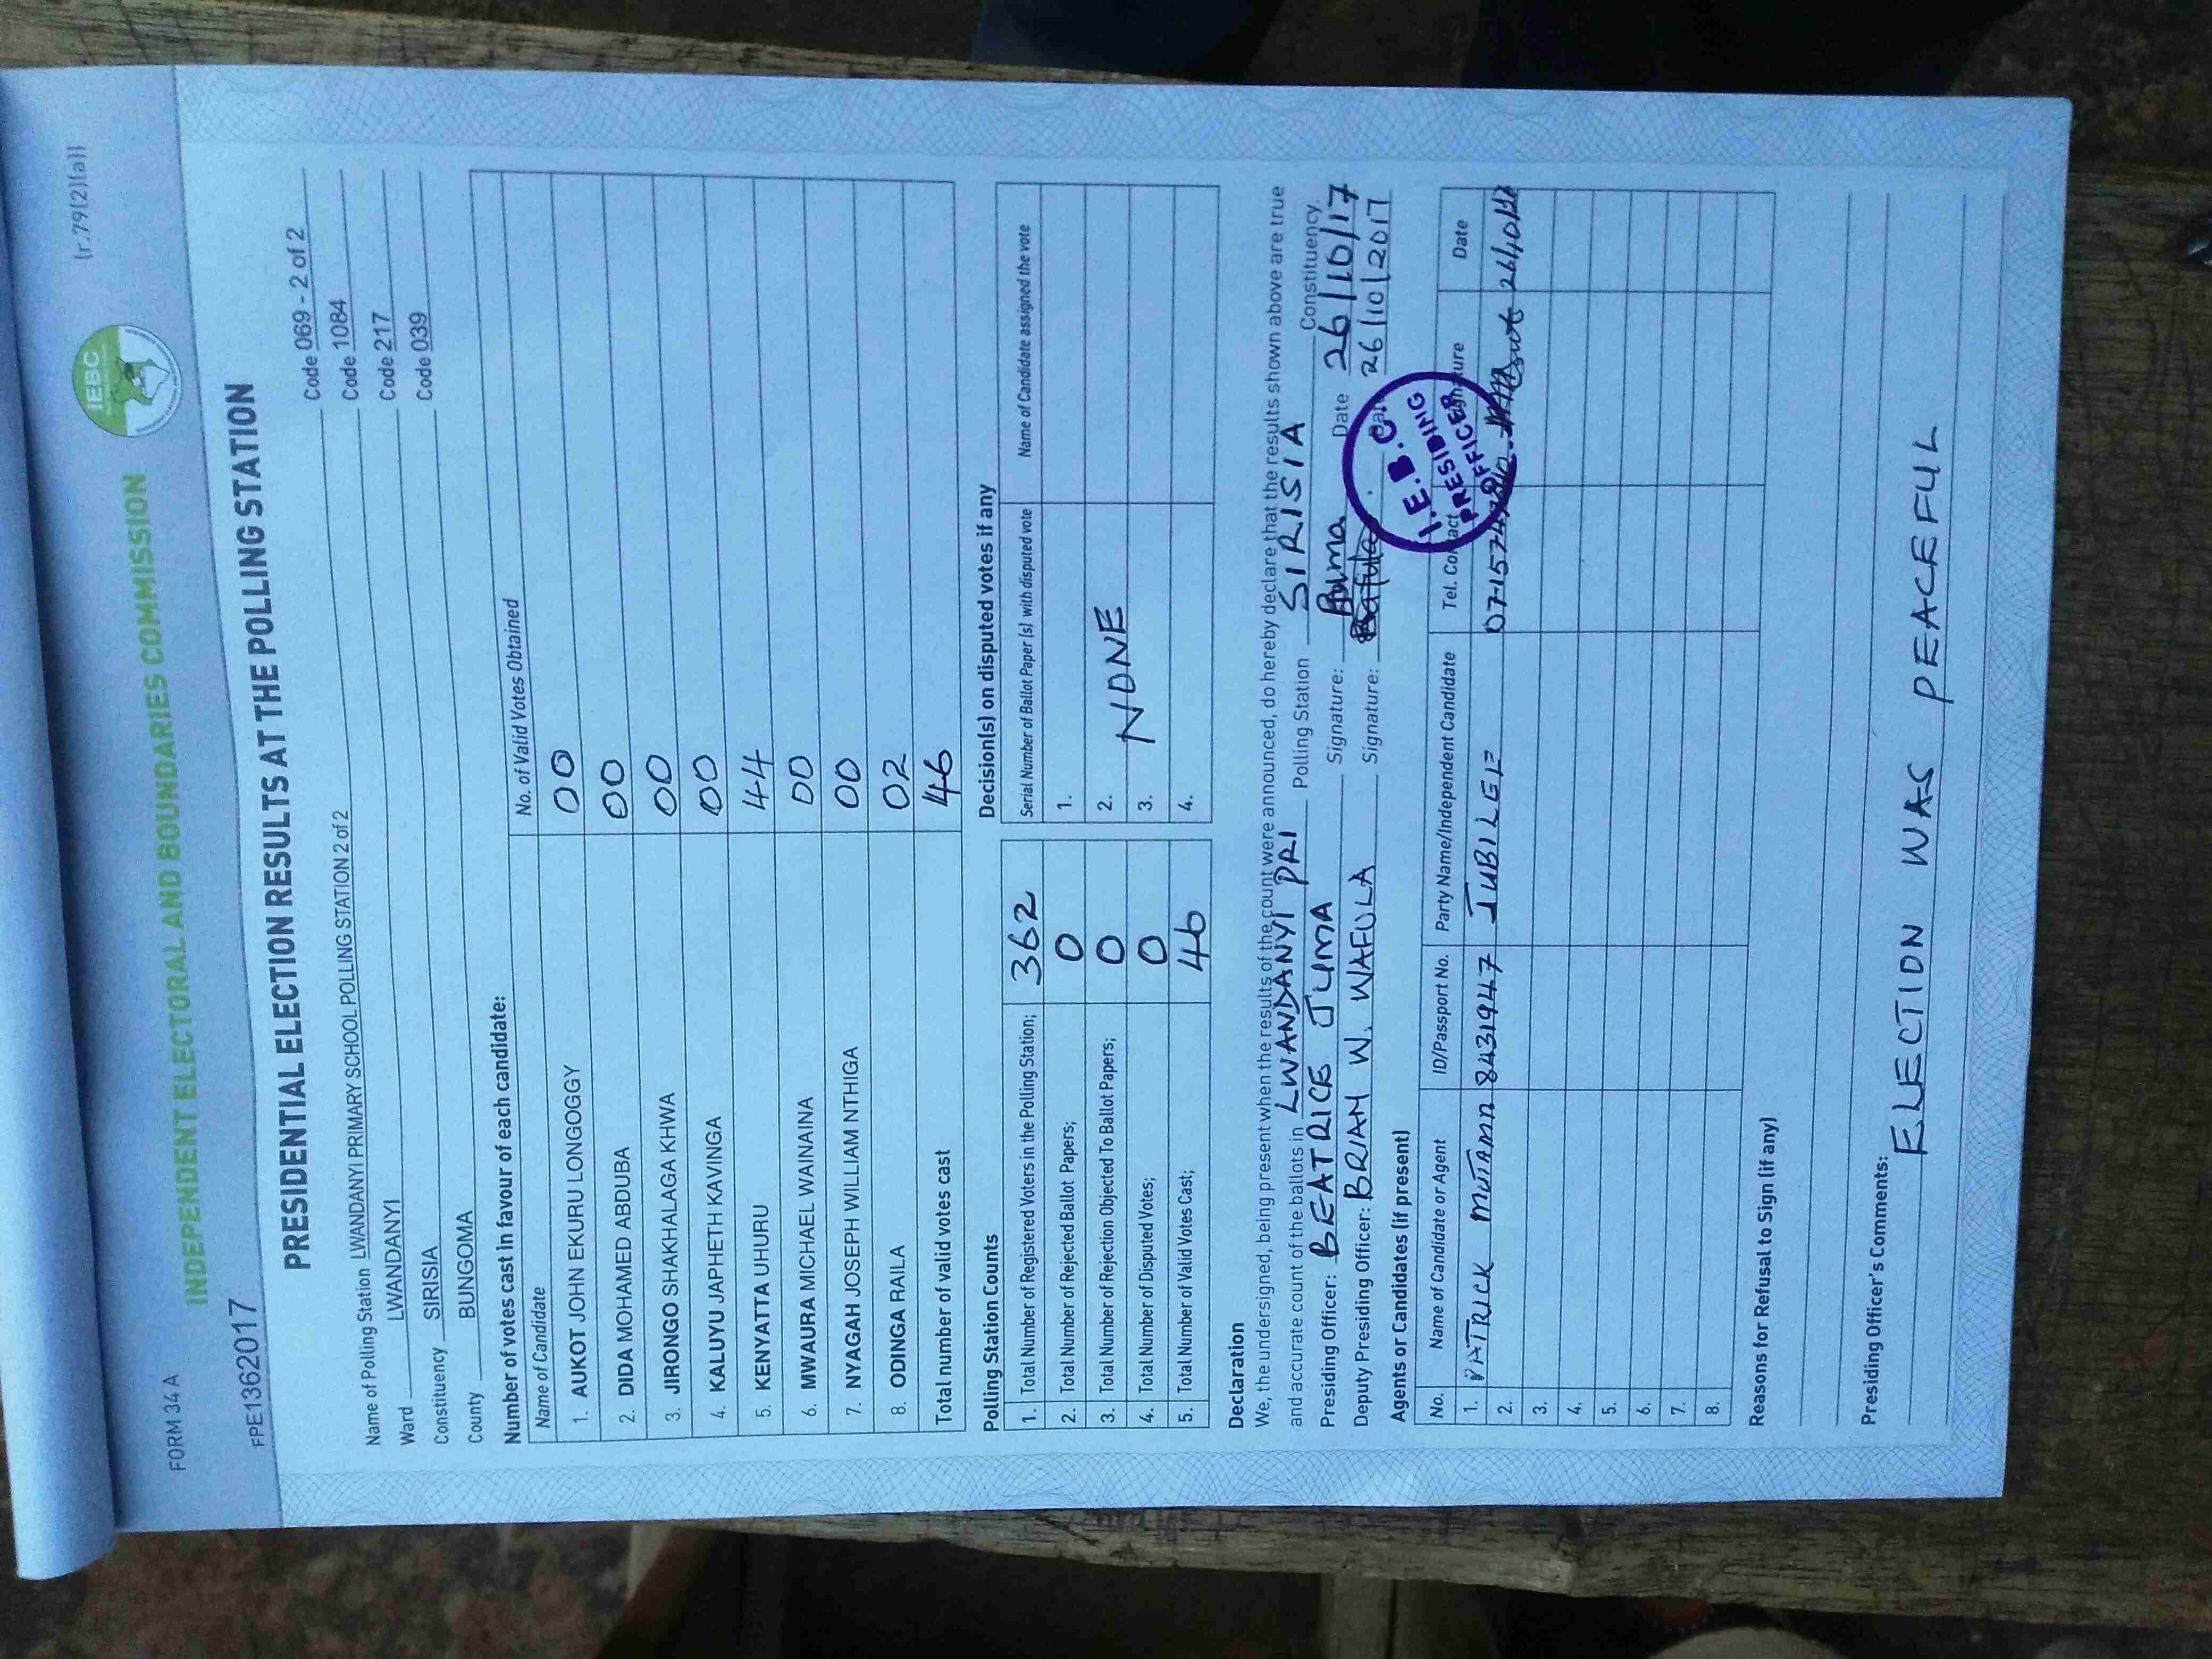 FORM 34 A
(r.79(2)(a))
IEBC
INDEPENDENT ELECTORAL AND BOUNDARIES COMMISSION
FPE1362017
PRESIDENTIAL ELECTION RESULTS AT THE POLLING STATION
Name of Polling Station LWANDANYI PRIMARY SCHOOL POLLING STATION 2 of 2 Code 069 - 2 of 2
Ward LWANDANYI Code 1084
Constituency SIRISIA Code 217
County BUNGOMA Code 039
Number of votes cast in favour of each candidate:
Name of Candidate No. of Valid Votes Obtained
1. AUKOT JOHN EKURU LONGOGGY 00
2. DIDA MOHAMED ABDUBA 00
3. JIRONGO SHAKHALAGA KHWA 00
4. KALUYU JAPHETH KAVINGA 00
5. KENYATTA UHURU 44
6. MWAURA MICHAEL WAINAINA 00
7. NYAGAH JOSEPH WILLIAM NTHIGA 00
8. ODINGA RAILA 02
Total number of valid votes cast 46
Polling Station Counts
1. Total Number of Registered Voters in the Polling Station; 362
2. Total Number of Rejected Ballot Papers; 0
3. Total Number of Rejection Objected To Ballot Papers; 0
4. Total Number of Disputed Votes; 0
5. Total Number of Valid Votes Cast; 46
Decision(s) on disputed votes if any
Serial Number of Ballot Paper (s) with disputed vote Name of Candidate assigned the vote
1.
2. NONE
3.
4.
Declaration
We, the undersigned, being present when the results of the count were announced, do hereby declare that the results shown above are true
and accurate count of the ballots in LWANDANYI PRI Polling Station SIRISIA Constituency.
Presiding Officer: BEATRICE JUMA Signature: Date 26/10/17
Deputy Presiding Officer: BRIAN W. WAFULA Signature: 26/10/2017
I.E.B.C.
PRESIDING
OFFICER
Agents or Candidates (if present)
No. Name of Candidate or Agent ID/Passport No. Party Name/Independent Candidate Tel. Contact Signature Date
1. PATRICK 8431947 JUBILEE
2.
3.
4.
5.
6.
7.
8.
Reasons for Refusal to Sign (if any)
Presiding Officer's Comments:
ELECTION WAS PEACEFUL